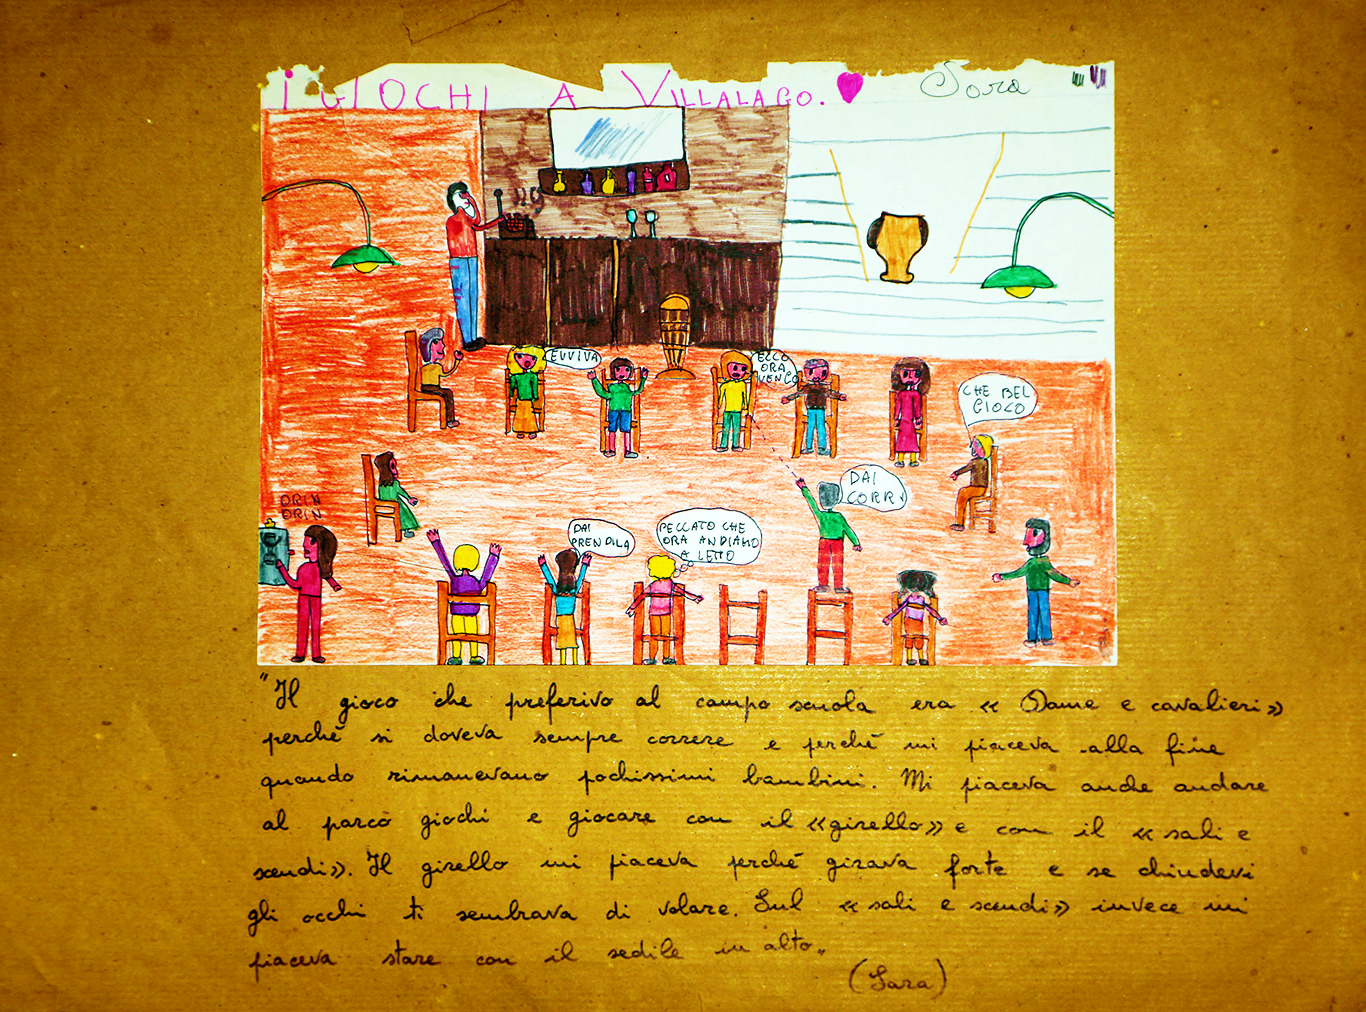 I GIOCHI A VILLALAGO. Sara
EVVIVA
ECCO
ORA
VENGO
CHE BEL
GIOCO
DAI
CORRI
DRIN
DRIN
DAI
PRENDILA
PECCATO CHE
ORA ANDIAMO
A LETTO
"Il gioco che preferivo al campo scuola era « Dame e cavalieri»
perché si doveva sempre correre e perché mi piaceva alla fine
quando rimanevano pochissimi bambini. Mi piaceva anche andare
al parco giochi e giocare con il «girello» e con il « sali e
scendi». Il girello mi piaceva perché girava forte e se chiudevi
gli occhi ti sembrava di volare. Sul « sali e scendi» invece mi
piaceva stare con il sedile in alto„
(Sara)